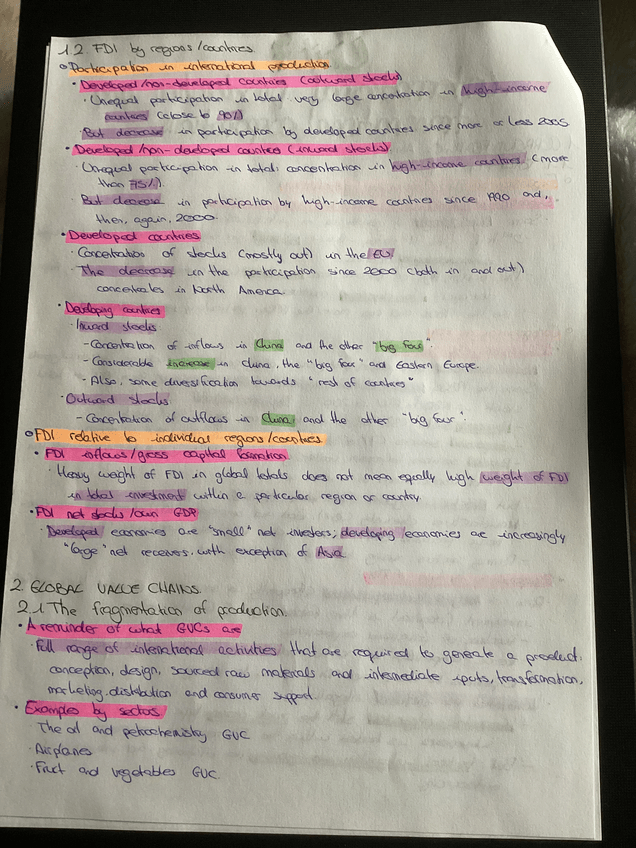 1.2. FDI by regions/countries.
Participation in international production.
· Developed/non-developed countries (outward stocks)
· Unequal participation in total: very large concentration in high-income
countries (close to 90%)
· But decrease in participation by developed countries since more or less 2005
· Developed/non-developed countries (inward stocks)
· Unequal participation in total: concentration in high-income countries (more
than 75%).
· But decrease in participation by high-income countries since 1990 and,
then, again, 2000.
· Developed countries
· Concentration of stocks (mostly out) in the EU
· The decrease in the participation since 2000 (both in and out)
concentrates in North America.
· Developing countries
· Inward stocks
- Concentration of inflows in China and the other "big four".
- Considerable increase in China, the "big four" and Eastern Europe.
- Also, some diversification towards "rest of countries"
· Outward stocks
- Concentration of outflows in China and the other "big four".
FDI relative to individual regions/countries
· FDI inflows/gross capital formation
· Heavy weight of FDI in global totals does not mean equally high weight of FDI
in total investment within a particular region or country.
· FDI net stocks/own GDP
· Developed economies are "small" net investers; developing economies are increasingly
"large" net receivers, with exception of Asia
2. GLOBAL VALUE CHAINS.
2.1 The fragmentation of production.
· A reminder of what GVCs are
· Full range of international activities that are required to generate a product:
conception, design, sourced raw materials and intermediate inputs, transformation,
marketing, distribution and consumer support.
· Examples by sectors
· The oil and petrochemistry GVC
· Airplanes
· Fruit and vegetables GVC